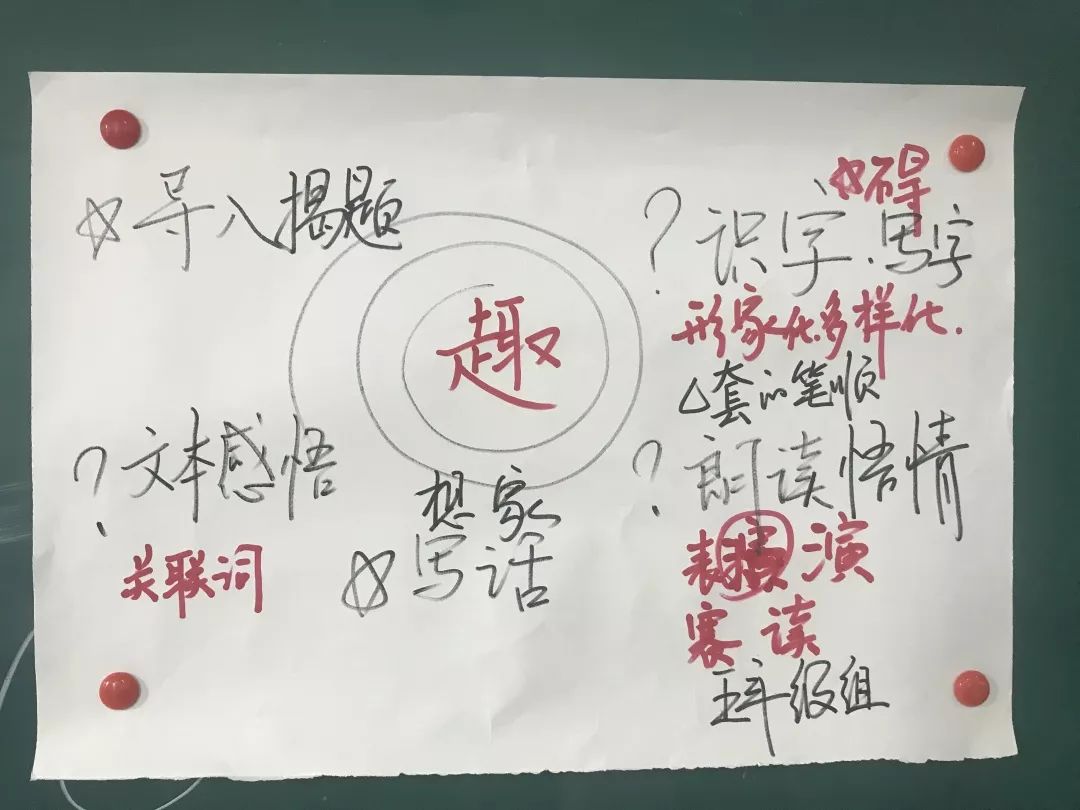 ☆导入揭题
?识字、写字
趣
形象化多样化.
△套的笔顺
?文本感悟
关联词
想象
☆写话
?朗读悟情
表演
赛读
五年级组